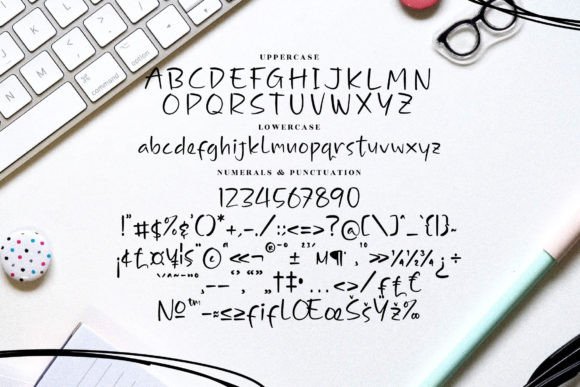 control
option
command
UPPERCASE
ABCDEFGHIJKLMN
OPQRSTUVWXYZ
LOWERCASE
abcdefghijklmnopqrstuvwxyz
NUMERALS & PUNCTUATION
1234567890
!"#$%&'()*+,-./:;<=>?@[\]^_`{|}~
¡¢£¤¥¦§¨©ª«¬®¯°±²³´µ¶·¸¹º»¼½¾¿÷
†‡•…‹›⁄
№™−≈≤≥fiflŁŒœŠšŸž‰